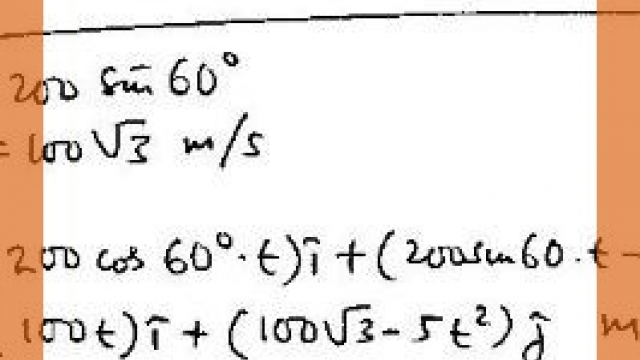 200 sin 60°
= 100√3 m/s
200 cos 60°·t)î + (200sin60·t –
100t)î + (100√3 - 5t²) ĵ m